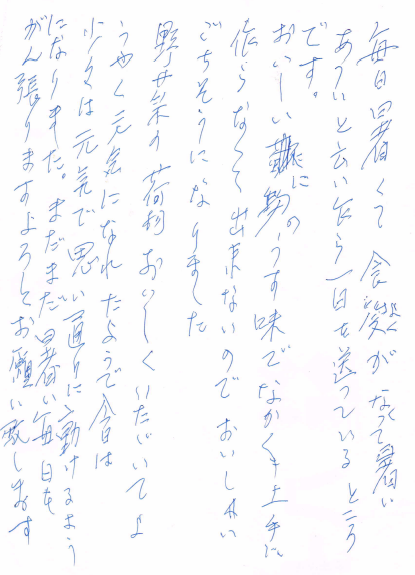 毎日暑くて食慾がなくて暑い
あついと云い乍ら一日を送っているところ
です。
おいしい に物のうす味でなかなか上手に
依らなくて出来ないのでおいしい
ごちそうになりました
野菜の おいしくいただいてよ
うやく元気になれたようで今日は
少々は元気で思い通りに動けるよう
になりました。まだまだ暑い毎日を
がん張りますよろしくお願い致します